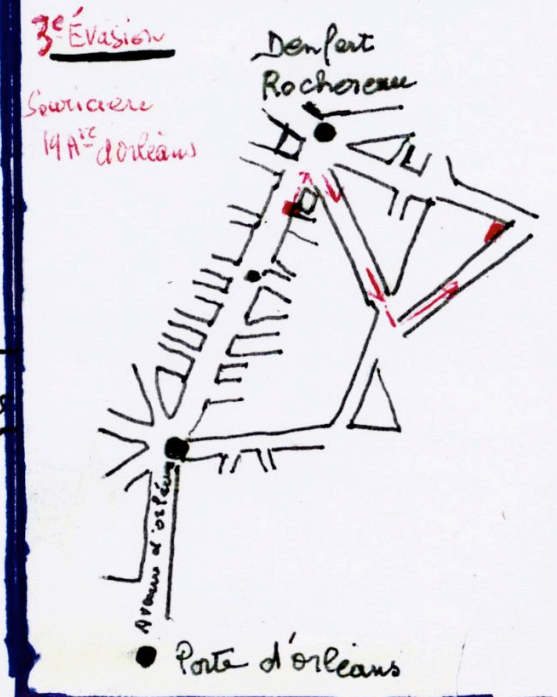 3e Évasion
Souricière
19 Ave d'orléans
Denfert
Rochereau
Avenue d'orléans
Porte d'orléans